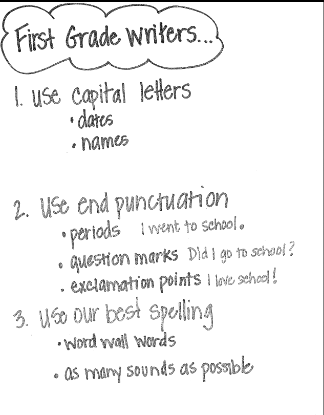 First Grade Writers...
1. use capital letters
• dates
• names
2. use end punctuation
• periods I went to school.
• question marks Did I go to school?
• exclamation points I love school!
3. use our best spelling
• word wall words
• as many sounds as possible